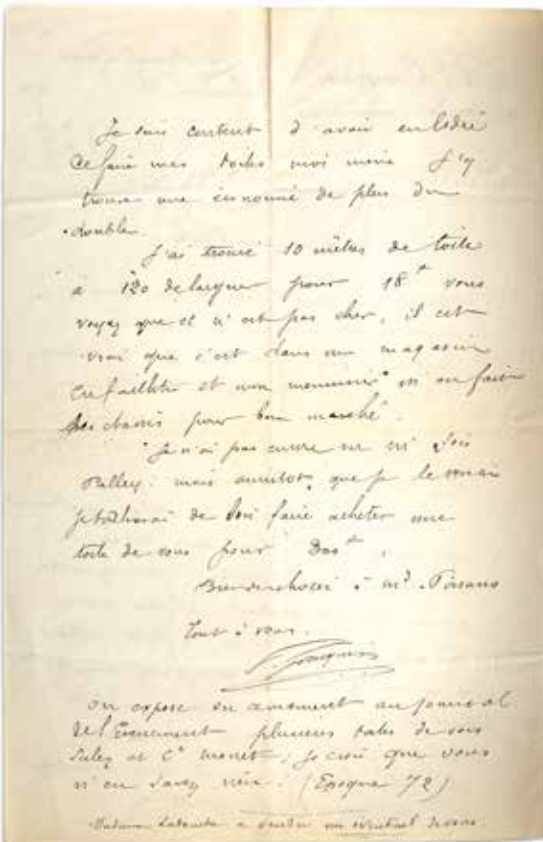 Je suis content d'avoir
de faire mes toiles moi même J'y
trouve une économie de plus du
double.
J'ai trouvé 10 mètres de toile
à 120 de largeur pour 18f vous
voyez que ce n'est pas cher, il est
vrai que c'est dans un magasin
et mon menuisier m'en fait
des chassis pour bon marché.
Je n'ai pas encore vu ni
mais aussitot que je le verrai
je tacherai de lui faire acheter une
toile de vous pour
Bien des choses à md. Pissarro
Tout à vous.
On expose en ce moment au journal
de l'Evenement plusieurs toiles de vous
Sisley et Ce Monet, je crois que vous
n'en savez rien. (Epoque 72)
Madame Latouche a vendu un eventail de vous